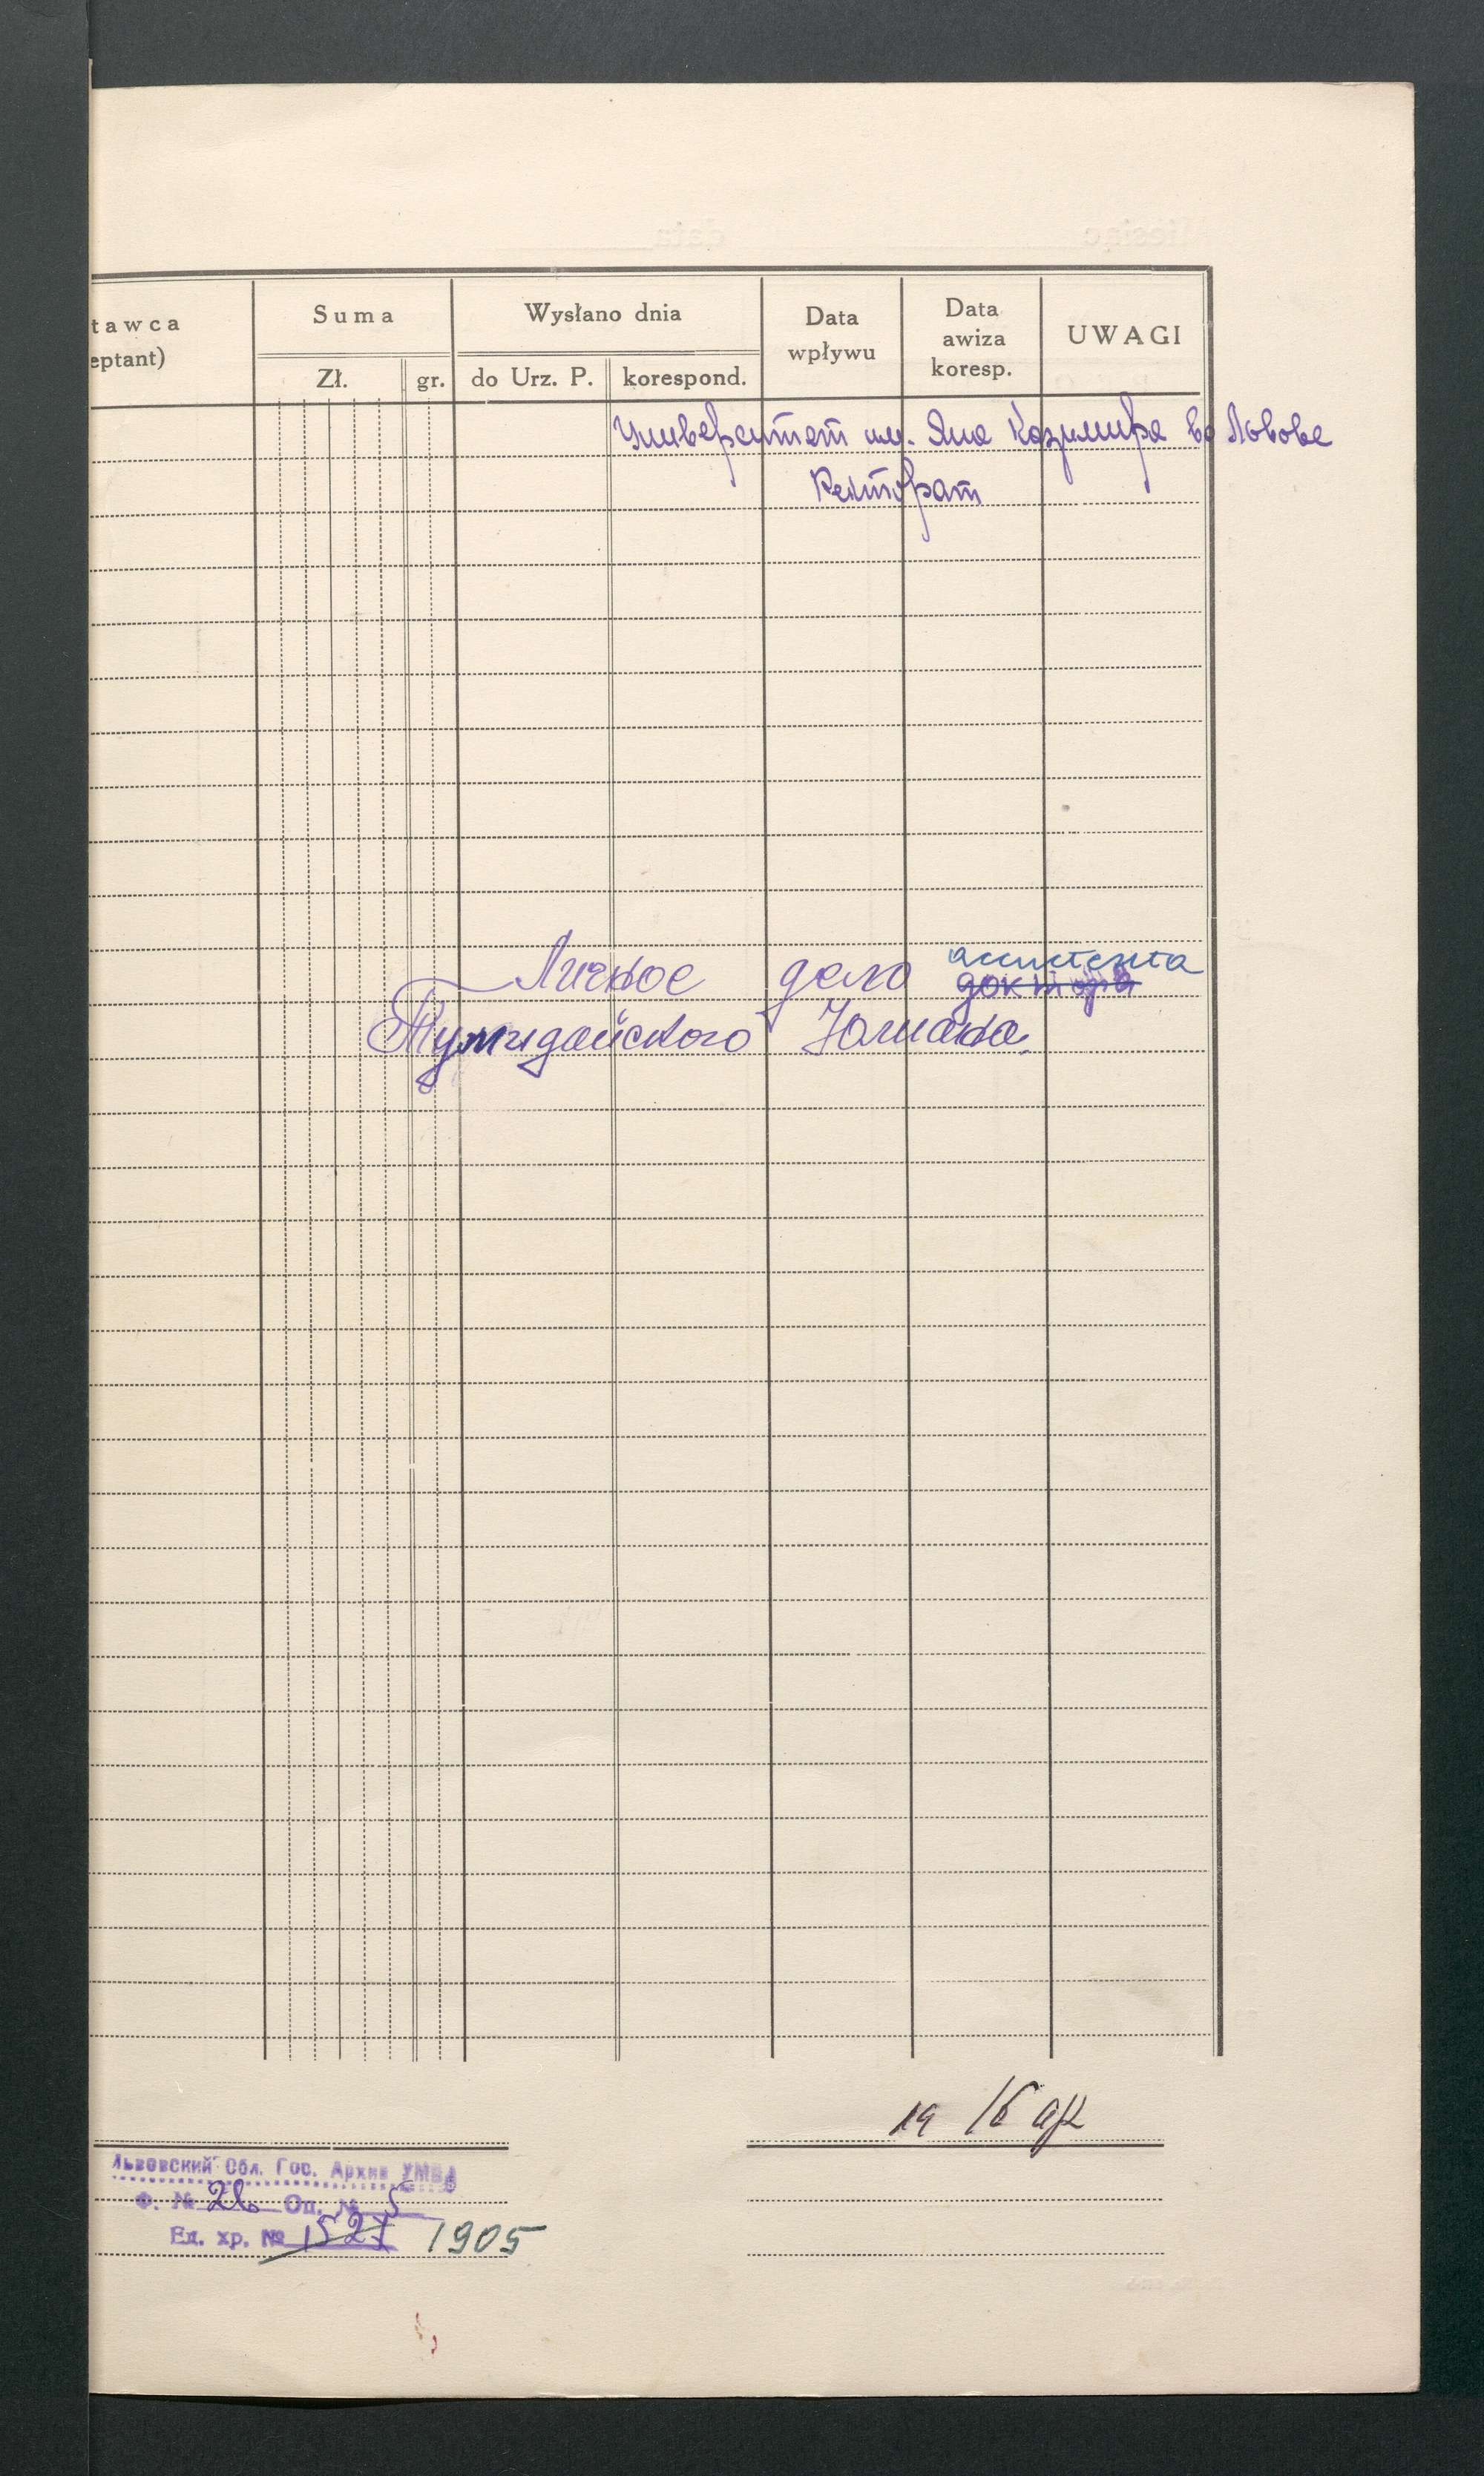 tawca
eptant)
Suma
Zł.
gr.
Wysłano dnia
do Urz. P.
korespond.
Data
wpływu
Data
awiza
koresp.
UWAGI
Университет им. Яна Казимира во Львове
Ректорат
ассистента
Личное дело доктора
Тумидайского Юлиана.
Львовский Обл. Гос. Архив УМВД
Ф. № 26 Оп. № 5
Ед. хр. № 1527 1905